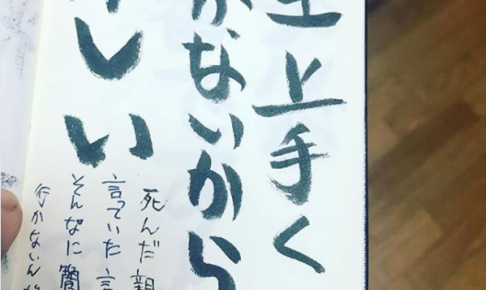 上手く
かないから
しい
死んだ親
言っていた言
そんなに簡
行かないん